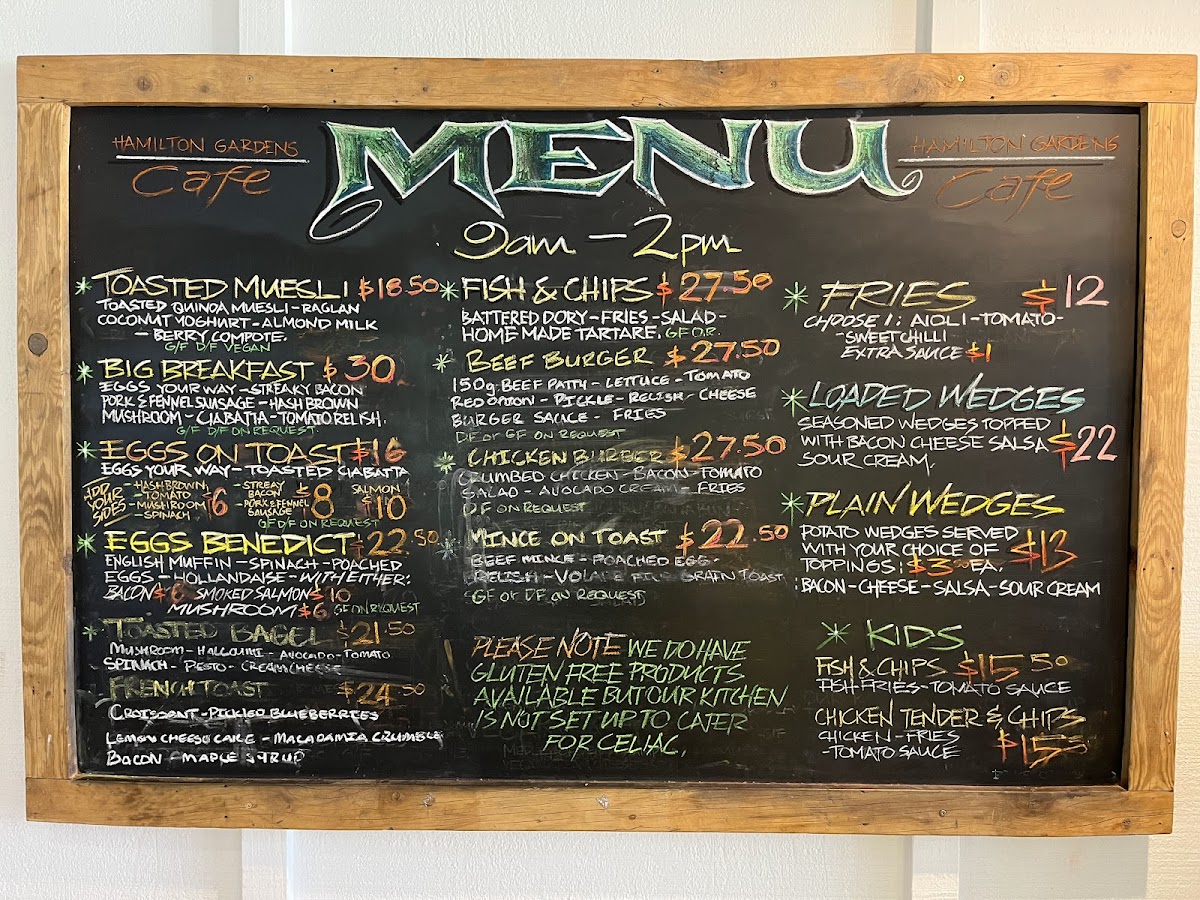 HAMILTON GARDENS
Cafe
MENU
HAMILTON GARDENS
Cafe
9am - 2pm
* TOASTED MUESLI $18.50
TOASTED QUINOA MUESLI - RAGLAN
COCONUT YOGHURT - ALMOND MILK
- BERRY COMPOTE.
G/F D/F VEGAN
* BIG BREAKFAST $30
EGGS YOUR WAY - STREAKY BACON
PORK & FENNEL SAUSAGE - HASH BROWN
MUSHROOM - CIABATTA - TOMATO RELISH.
G/F D/F ON REQUEST.
* EGGS ON TOAST $16
EGGS YOUR WAY - TOASTED CIABATTA
ADD YOUR SIDES
- HASH BROWN
- TOMATO
- MUSHROOM
- SPINACH
$6
- STREAY
BACON
- PORK & FENNEL
SAUSAGE
$8
SALMON
$10
GF D/F ON REQUEST
* EGGS BENEDICT $22.50
ENGLISH MUFFIN - SPINACH - POACHED
EGGS - HOLLANDAISE - WITH EITHER:
BACON SMOKED SALMON $10
MUSHROOM $6 GF ON REQUEST
* TOASTED BAGEL $21.50
MUSHROOM - HALLOUMI - AVOCADO - TOMATO
SPINACH - PESTO - CREAM CHEESE
FRENCH TOAST $24.50
CROISSANT - PICKLED BLUEBERRIES
LEMON CHEESE CAKE - MACADAMIA CRUMBLE
BACON - MAPLE SYRUP
* FISH & CHIPS $27.50
BATTERED DORY - FRIES - SALAD -
HOME MADE TARTARE. GF O.R.
* BEEF BURGER $27.50
150g BEEF PATTY - LETTUCE - TOMATO
RED ONION - PICKLE - RELISH - CHEESE
BURGER SAUCE - FRIES
DF or GF ON REQUEST
* CHICKEN BURGER $27.50
CRUMBED CHICKEN - BACON - TOMATO
SALAD - AVOCADO CREAM - FRIES
DF ON REQUEST
* MINCE ON TOAST $22.50
BEEF MINCE - POACHED EGG -
RELISH - GRAIN TOAST
GF or DF ON REQUEST
PLEASE NOTE WE DO HAVE
GLUTEN FREE PRODUCTS
AVAILABLE BUT OUR KITCHEN
IS NOT SET UP TO CATER
FOR CELIAC.
* FRIES $12
CHOOSE 1: AIOLI - TOMATO -
- SWEET CHILLI
EXTRA SAUCE $1
* LOADED WEDGES
SEASONED WEDGES TOPPED
WITH BACON CHEESE SALSA $22
SOUR CREAM.
* PLAIN WEDGES
POTATO WEDGES SERVED
WITH YOUR CHOICE OF $13
TOPPINGS: EA.
BACON - CHEESE - SALSA - SOUR CREAM
* KIDS
FISH & CHIPS $15.50
FISH FRIES - TOMATO SAUCE
CHICKEN TENDER & CHIPS
CHICKEN - FRIES
- TOMATO SAUCE $15.50